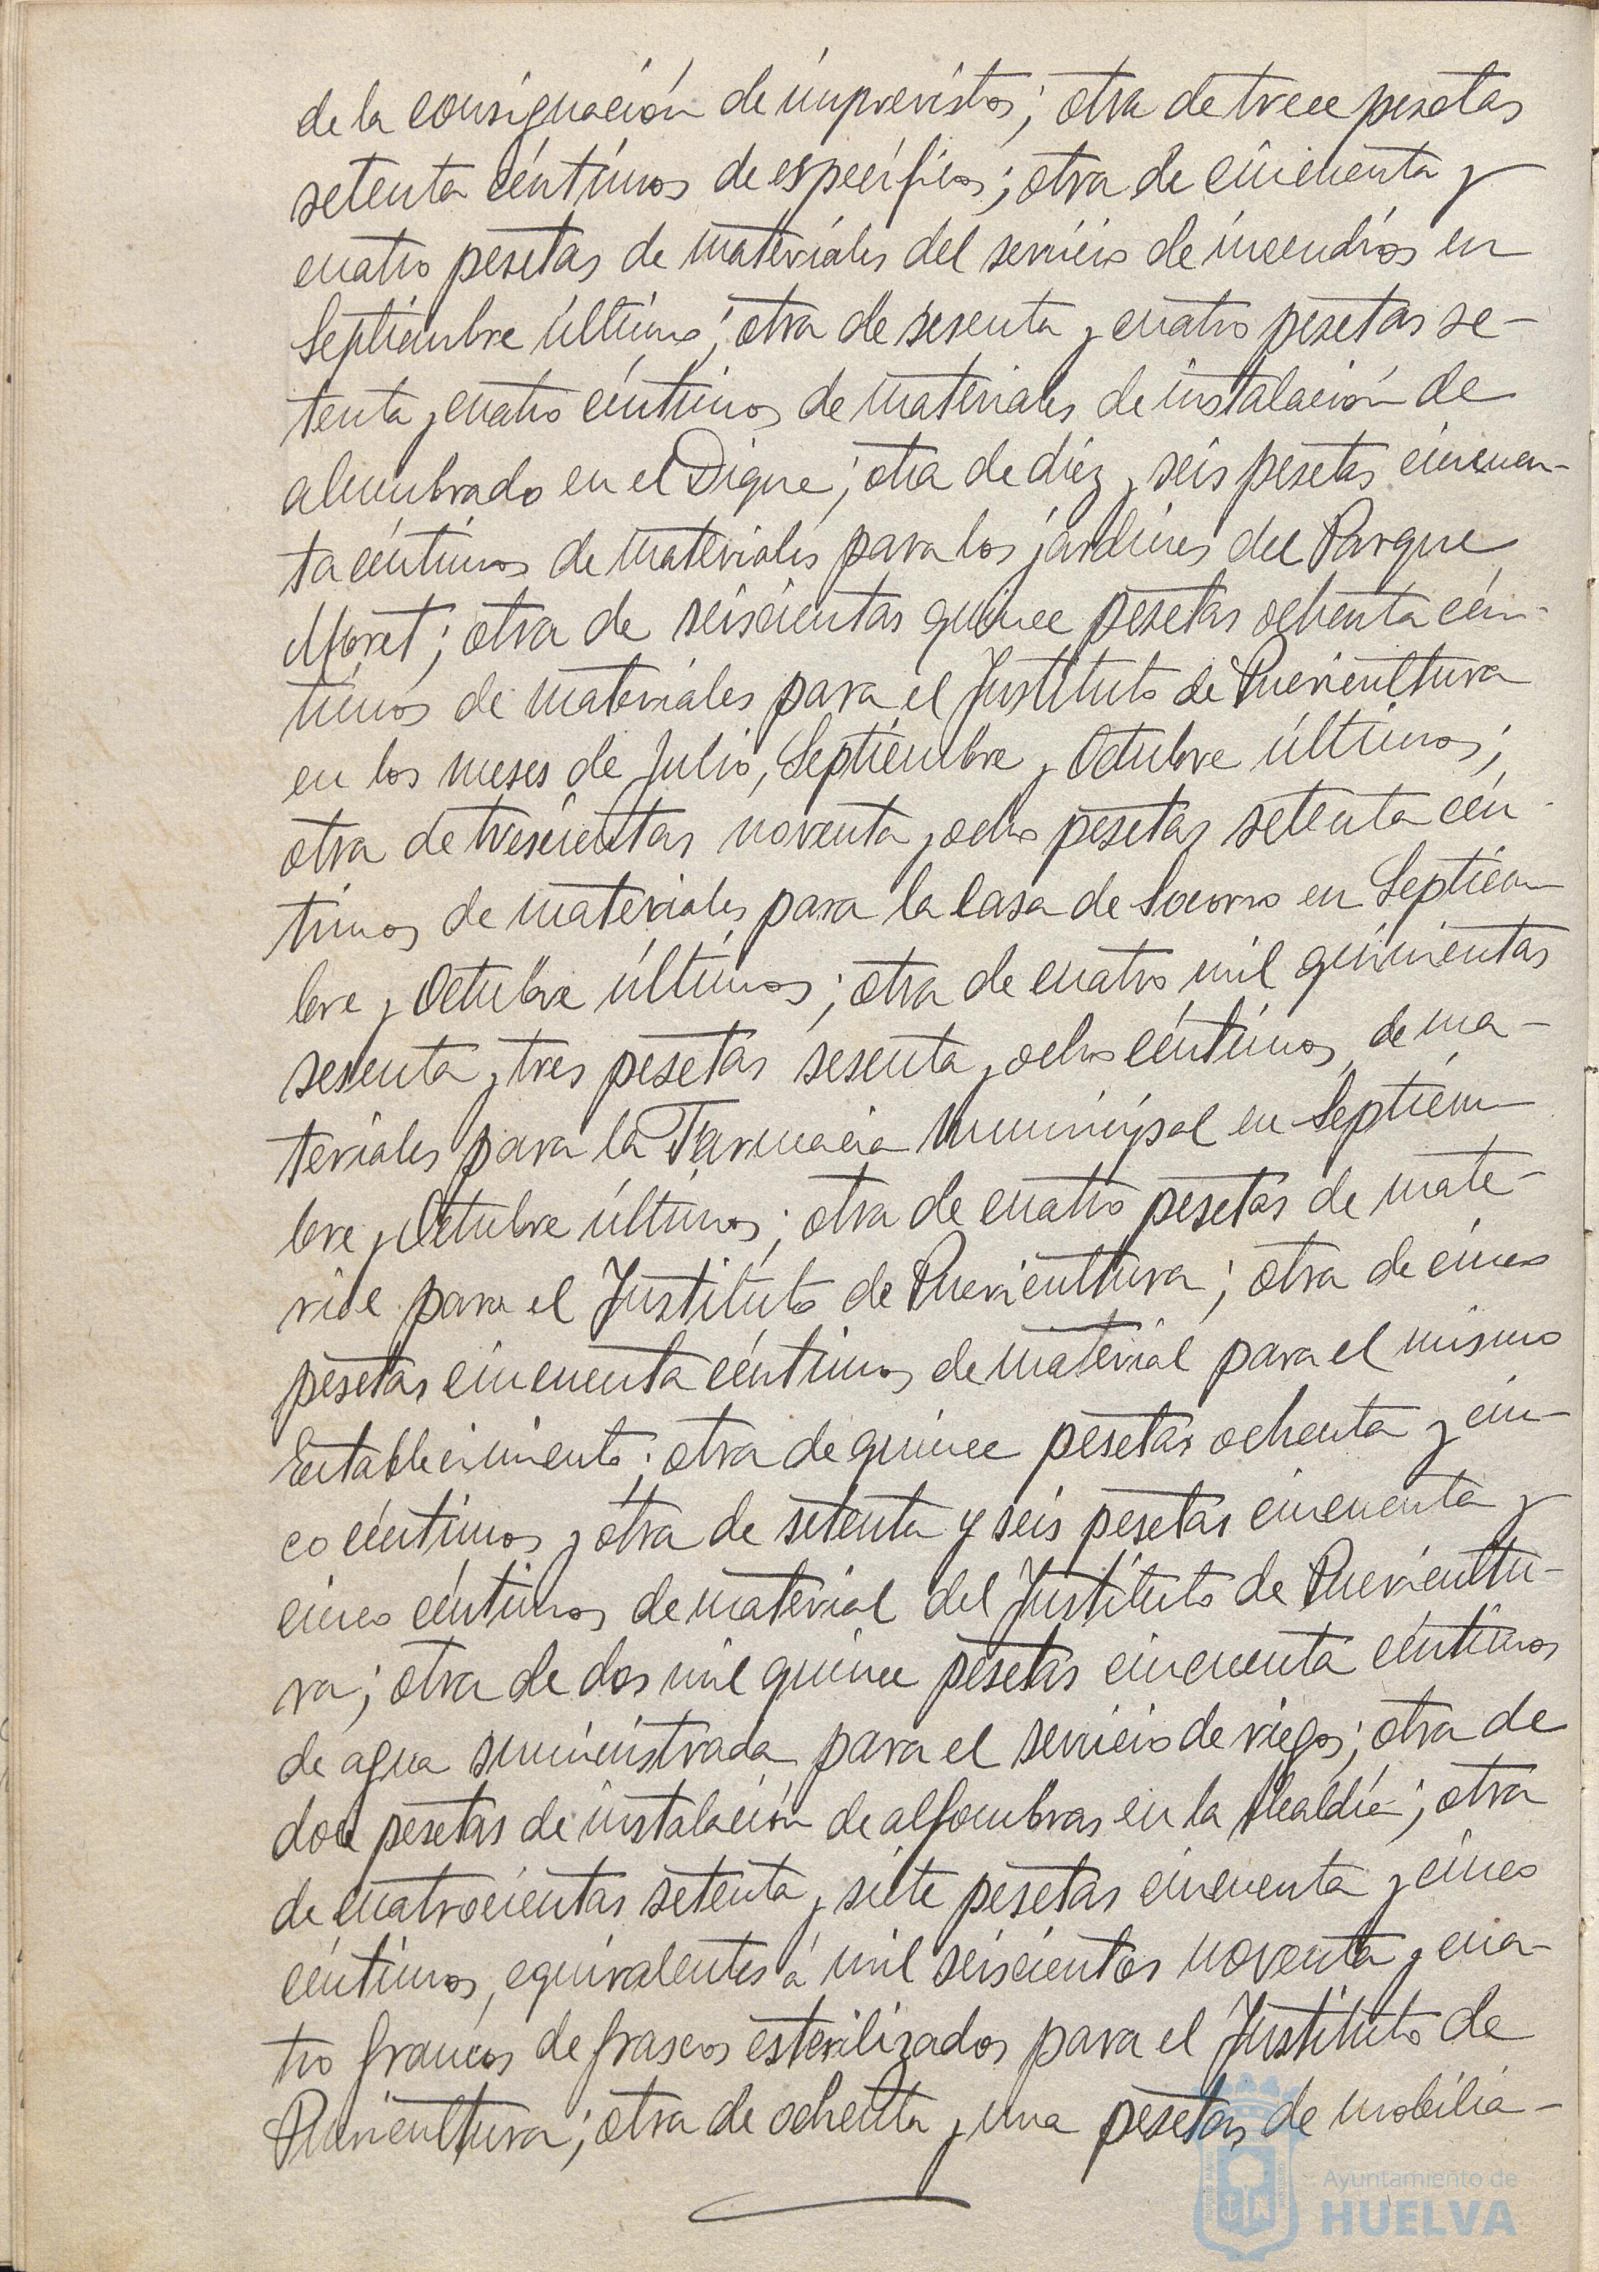 de la consignación de imprevistos; otra de trece pesetas
setenta céntimos de específicos; otra de cincuenta y
cuatro pesetas de materiales del servicio de incendios en
Septiembre último; otra de sesenta y cuatro pesetas se-
tenta y cuatro céntimos de materiales de instalación de
alumbrado en el Dique; otra de diez y seis pesetas cincuen-
ta céntimos de materiales para los jardines del Parque
Moret; otra de seiscientas quince pesetas ochenta cén-
timos de materiales para el Instituto de Puericultura
en los meses de Julio, Septiembre y Octubre últimos;
otra de trescientas noventa y ocho pesetas setenta cén-
timos de materiales para la Casa de Socorro en Septiem-
bre y Octubre últimos; otra de cuatro mil quinientas
sesenta y tres pesetas sesenta y ocho céntimos de ma-
teriales para la Farmacia Municipal en Septiem-
bre y Octubre últimos; otra de cuatro pesetas de mate-
rial para el Instituto de Puericultura; otra de cinco
pesetas cincuenta céntimos de material para el mismo
Establecimiento; otra de quince pesetas ochenta y cin-
co céntimos y otra de setenta y seis pesetas cincuenta y
cinco céntimos de material del Instituto de Puericultu-
ra; otra de dos mil quince pesetas cincuenta céntimos
de agua suministrada para el servicio de riegos; otra de
doce pesetas de instalación de alfombras en la Alcaldía; otra
de cuatrocientas setenta y siete pesetas cincuenta y cinco
céntimos, equivalentes á mil seiscientos noventa y cua-
tro francos de frascos esterilizados para el Instituto de
Puericultura; otra de ochenta y una pesetas de mobilia-
Ayuntamiento de
HUELVA